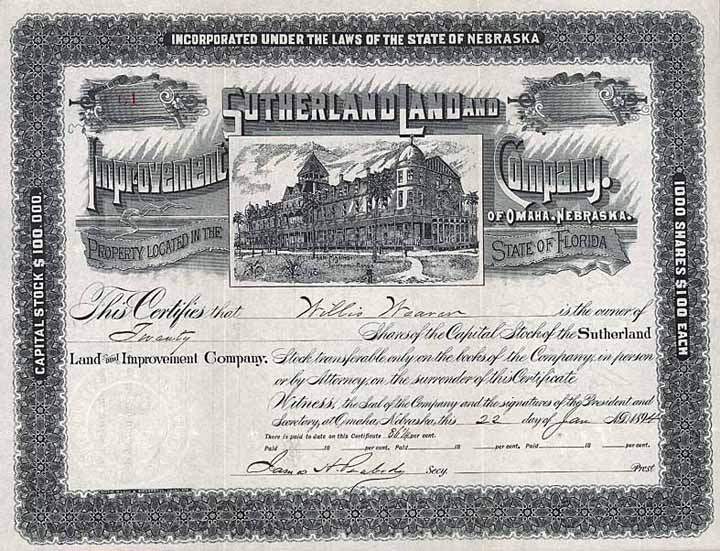 INCORPORATED UNDER THE LAWS OF THE STATE OF NEBRASKA
SUTHERLAND LAND AND
Improvement Company.
OF OMAHA, NEBRASKA.
PROPERTY LOCATED IN THE STATE OF FLORIDA
CAPITAL STOCK $100,000.
1000 SHARES $100 EACH
This Certifies that Willis Weaver is the owner of
Twenty Shares of the Capital Stock of the Sutherland
Land and Improvement Company. Stock transferable only on the books of the Company, in person
or by Attorney, on the surrender of this Certificate
Witness, the Seal of the Company and the signatures of the President and
Secretary, at Omaha, Nebraska, this 22 day of Jan A.D. 1894
There is paid to date on this Certificate per cent.
Paid 18 per cent. Paid 18 per cent. Paid 18 per cent.
James H. Peabody Secy. Prest